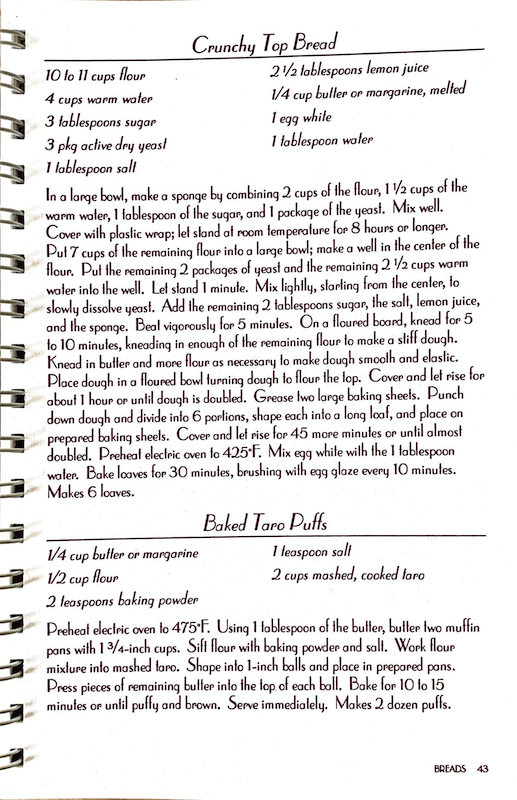 Crunchy Top Bread
10 to 11 cups flour
4 cups warm water
3 tablespoons sugar
3 pkg active dry yeast
1 tablespoon salt
2 1/2 tablespoons lemon juice
1/4 cup butter or margarine, melted
1 egg white
1 tablespoon water
In a large bowl, make a sponge by combining 2 cups of the flour, 1 1/2 cups of the
warm water, 1 tablespoon of the sugar, and 1 package of the yeast. Mix well.
Cover with plastic wrap; let stand at room temperature for 8 hours or longer.
Put 7 cups of the remaining flour into a large bowl; make a well in the center of the
flour. Put the remaining 2 packages of yeast and the remaining 2 1/2 cups warm
water into the well. Let stand 1 minute. Mix lightly, starting from the center, to
slowly dissolve yeast. Add the remaining 2 tablespoons sugar, the salt, lemon juice,
and the sponge. Beat vigorously for 5 minutes. On a floured board, knead for 5
to 10 minutes, kneading in enough of the remaining flour to make a stiff dough.
Knead in butter and more flour as necessary to make dough smooth and elastic.
Place dough in a floured bowl turning dough to flour the top. Cover and let rise for
about 1 hour or until dough is doubled. Grease two large baking sheets. Punch
down dough and divide into 6 portions, shape each into a long loaf, and place on
prepared baking sheets. Cover and let rise for 45 more minutes or until almost
doubled. Preheat electric oven to 425°F. Mix egg white with the 1 tablespoon
water. Bake loaves for 30 minutes, brushing with egg glaze every 10 minutes.
Makes 6 loaves.
Baked Taro Puffs
1/4 cup butter or margarine
1/2 cup flour
2 teaspoons baking powder
1 teaspoon salt
2 cups mashed, cooked taro
Preheat electric oven to 475°F. Using 1 tablespoon of the butter, butter two muffin
pans with 1 3/4-inch cups. Sift flour with baking powder and salt. Work flour
mixture into mashed taro. Shape into 1-inch balls and place in prepared pans.
Press pieces of remaining butter into the top of each ball. Bake for 10 to 15
minutes or until puffy and brown. Serve immediately. Makes 2 dozen puffs.
BREADS 43